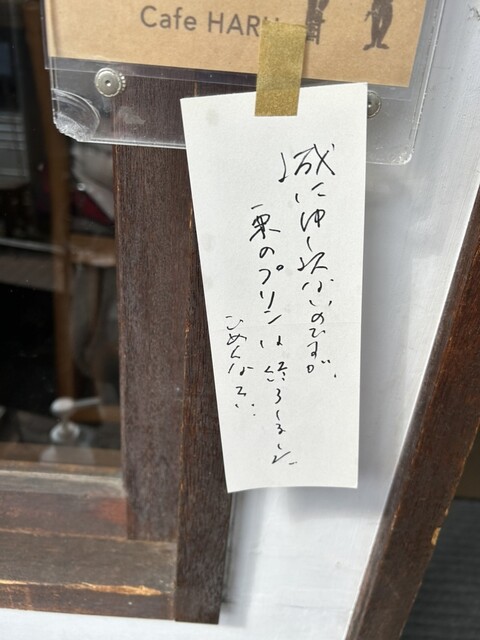 Cafe HARU
誠に申し訳ないのですが、
栗のプリンは終りました
ごめんなさい